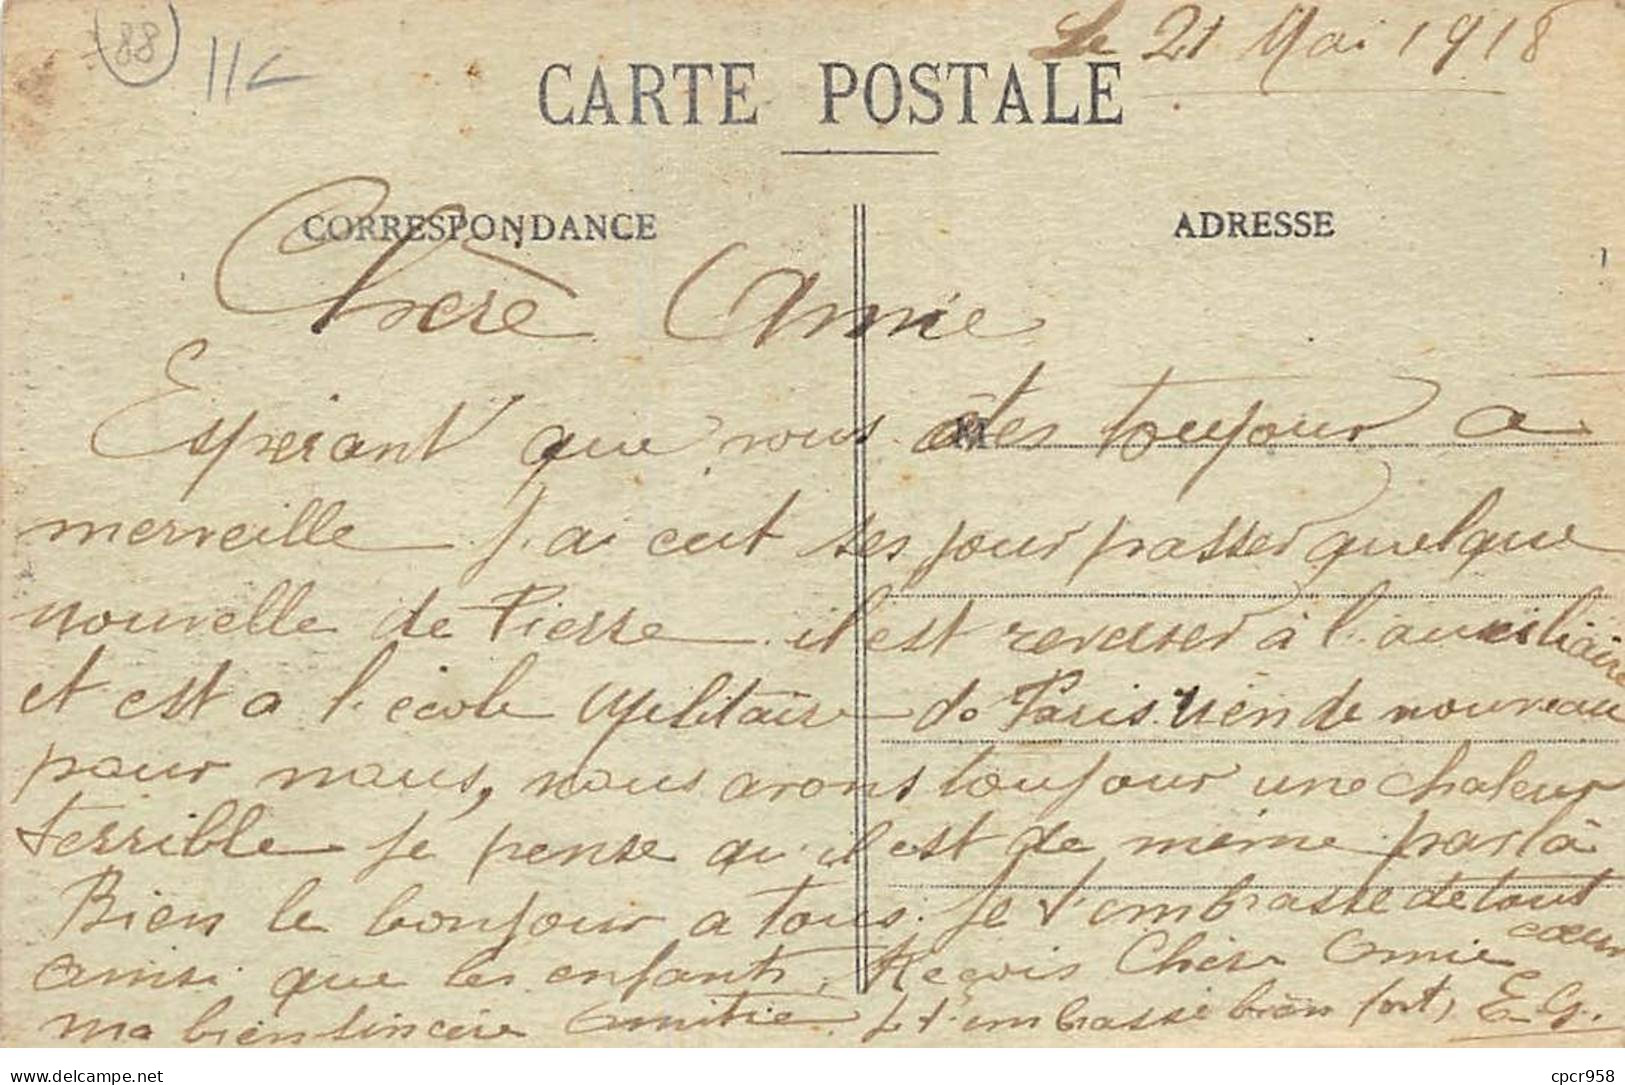 88
11c
Le 21 Mai 1918
CARTE POSTALE
CORRESPONDANCE
ADRESSE
Chère Amie
Esperant que vous êtes toujour à
merveille J'ai eut ses jour passer quelque
nouvelle de Pierre il est reverser à l'auxiliaire
et est a l'école Militaire de Paris. rien de nouveau
pour nous, nous avons toujour une chaleur
terrible je pense qu'il est de même par là
Bien le bonjour a tous. Je t'embrasse de tout cœur
ainsi que les enfants, Reçois Chère Amie
ma bien sincère amitie. Je t'embrasse bien fort, E. G.
delcampe.net
cpcr958